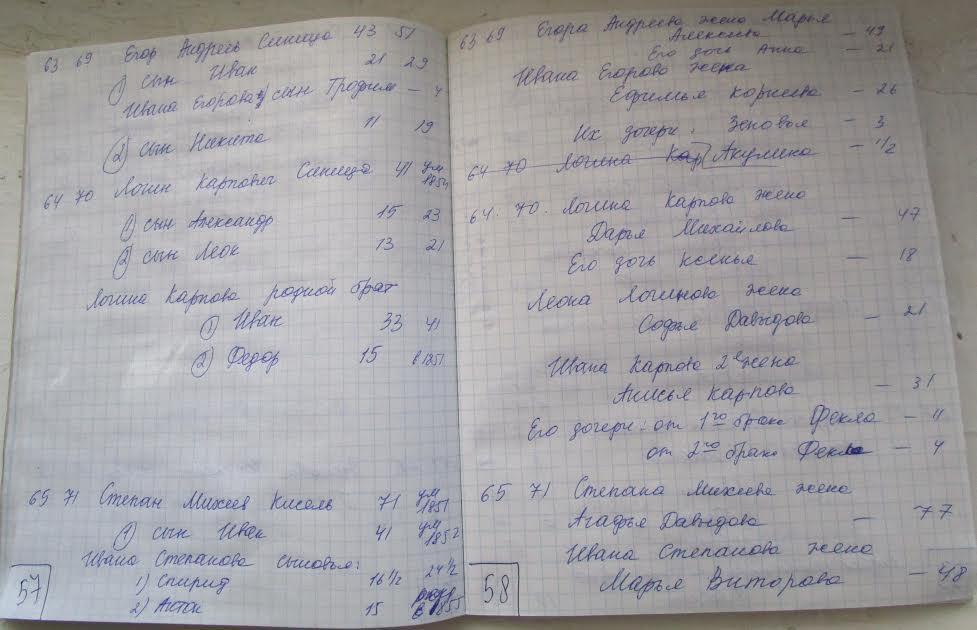 63 69 Егор Андреев Синица 43 51
1) сын Иван 21 29
Ивана Егорова 1) сын Трофим — 4
2) сын Никита 11 19
64 70 Логин Карпович Синица 41 ум 1854
1) сын Александр 15 23
2) сын Леон 13 21
Логина Карпова родной брат
1) Иван 33 41
2) Федор 15 в 1851
65 71 Степан Михеев Кисель 71 ум 1851
1) сын Иван 41 ум 1852
Ивана Степанова сыновья:
1) Спирид 16 1/2 24 1/2
2) Антон 15 в 1855
57
63 69 Егора Андреева жена Марья
Алексеева — 49
Его дочь Анна — 21
Ивана Егорова жена
Ефимья Корнеева — 26
Их дочери: Зеновья — 3
64 70 Логина Кар Акулина — 1/2
64. 70. Логина Карпова жена
Дарья Михайлова — 47
Его дочь Ксенья — 18
Леона Логинова жена
Софья Давыдова — 21
Ивана Карпова 2я жена
Анисья Карпова — 31
Его дочери: от 1го брака Фекла — 11
от 2го брака Фекла — 4
65 71 Степана Михеева жена
Агафья Давыдова — 77
Ивана Степанова жена
58 Марья Викторова — 48